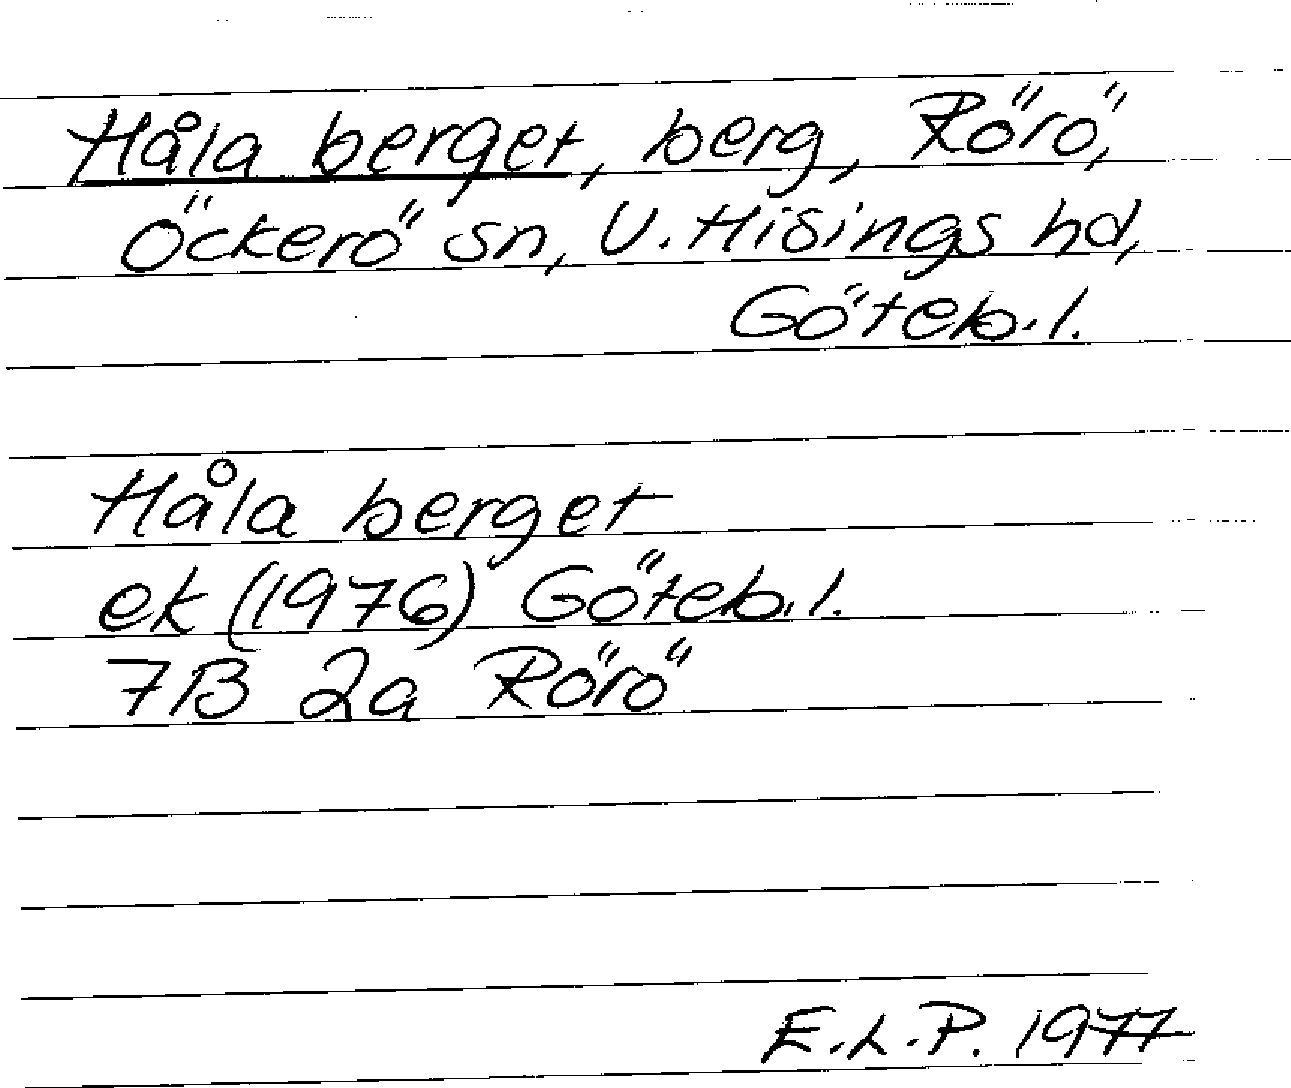 Håla berget, berg, Rörö,
Öckerö sn, V. Hisings hd,
Göteb.l.
Håla berget
ek (1976) Göteb.l.
7B 2a Rörö
E.L.P. 1977